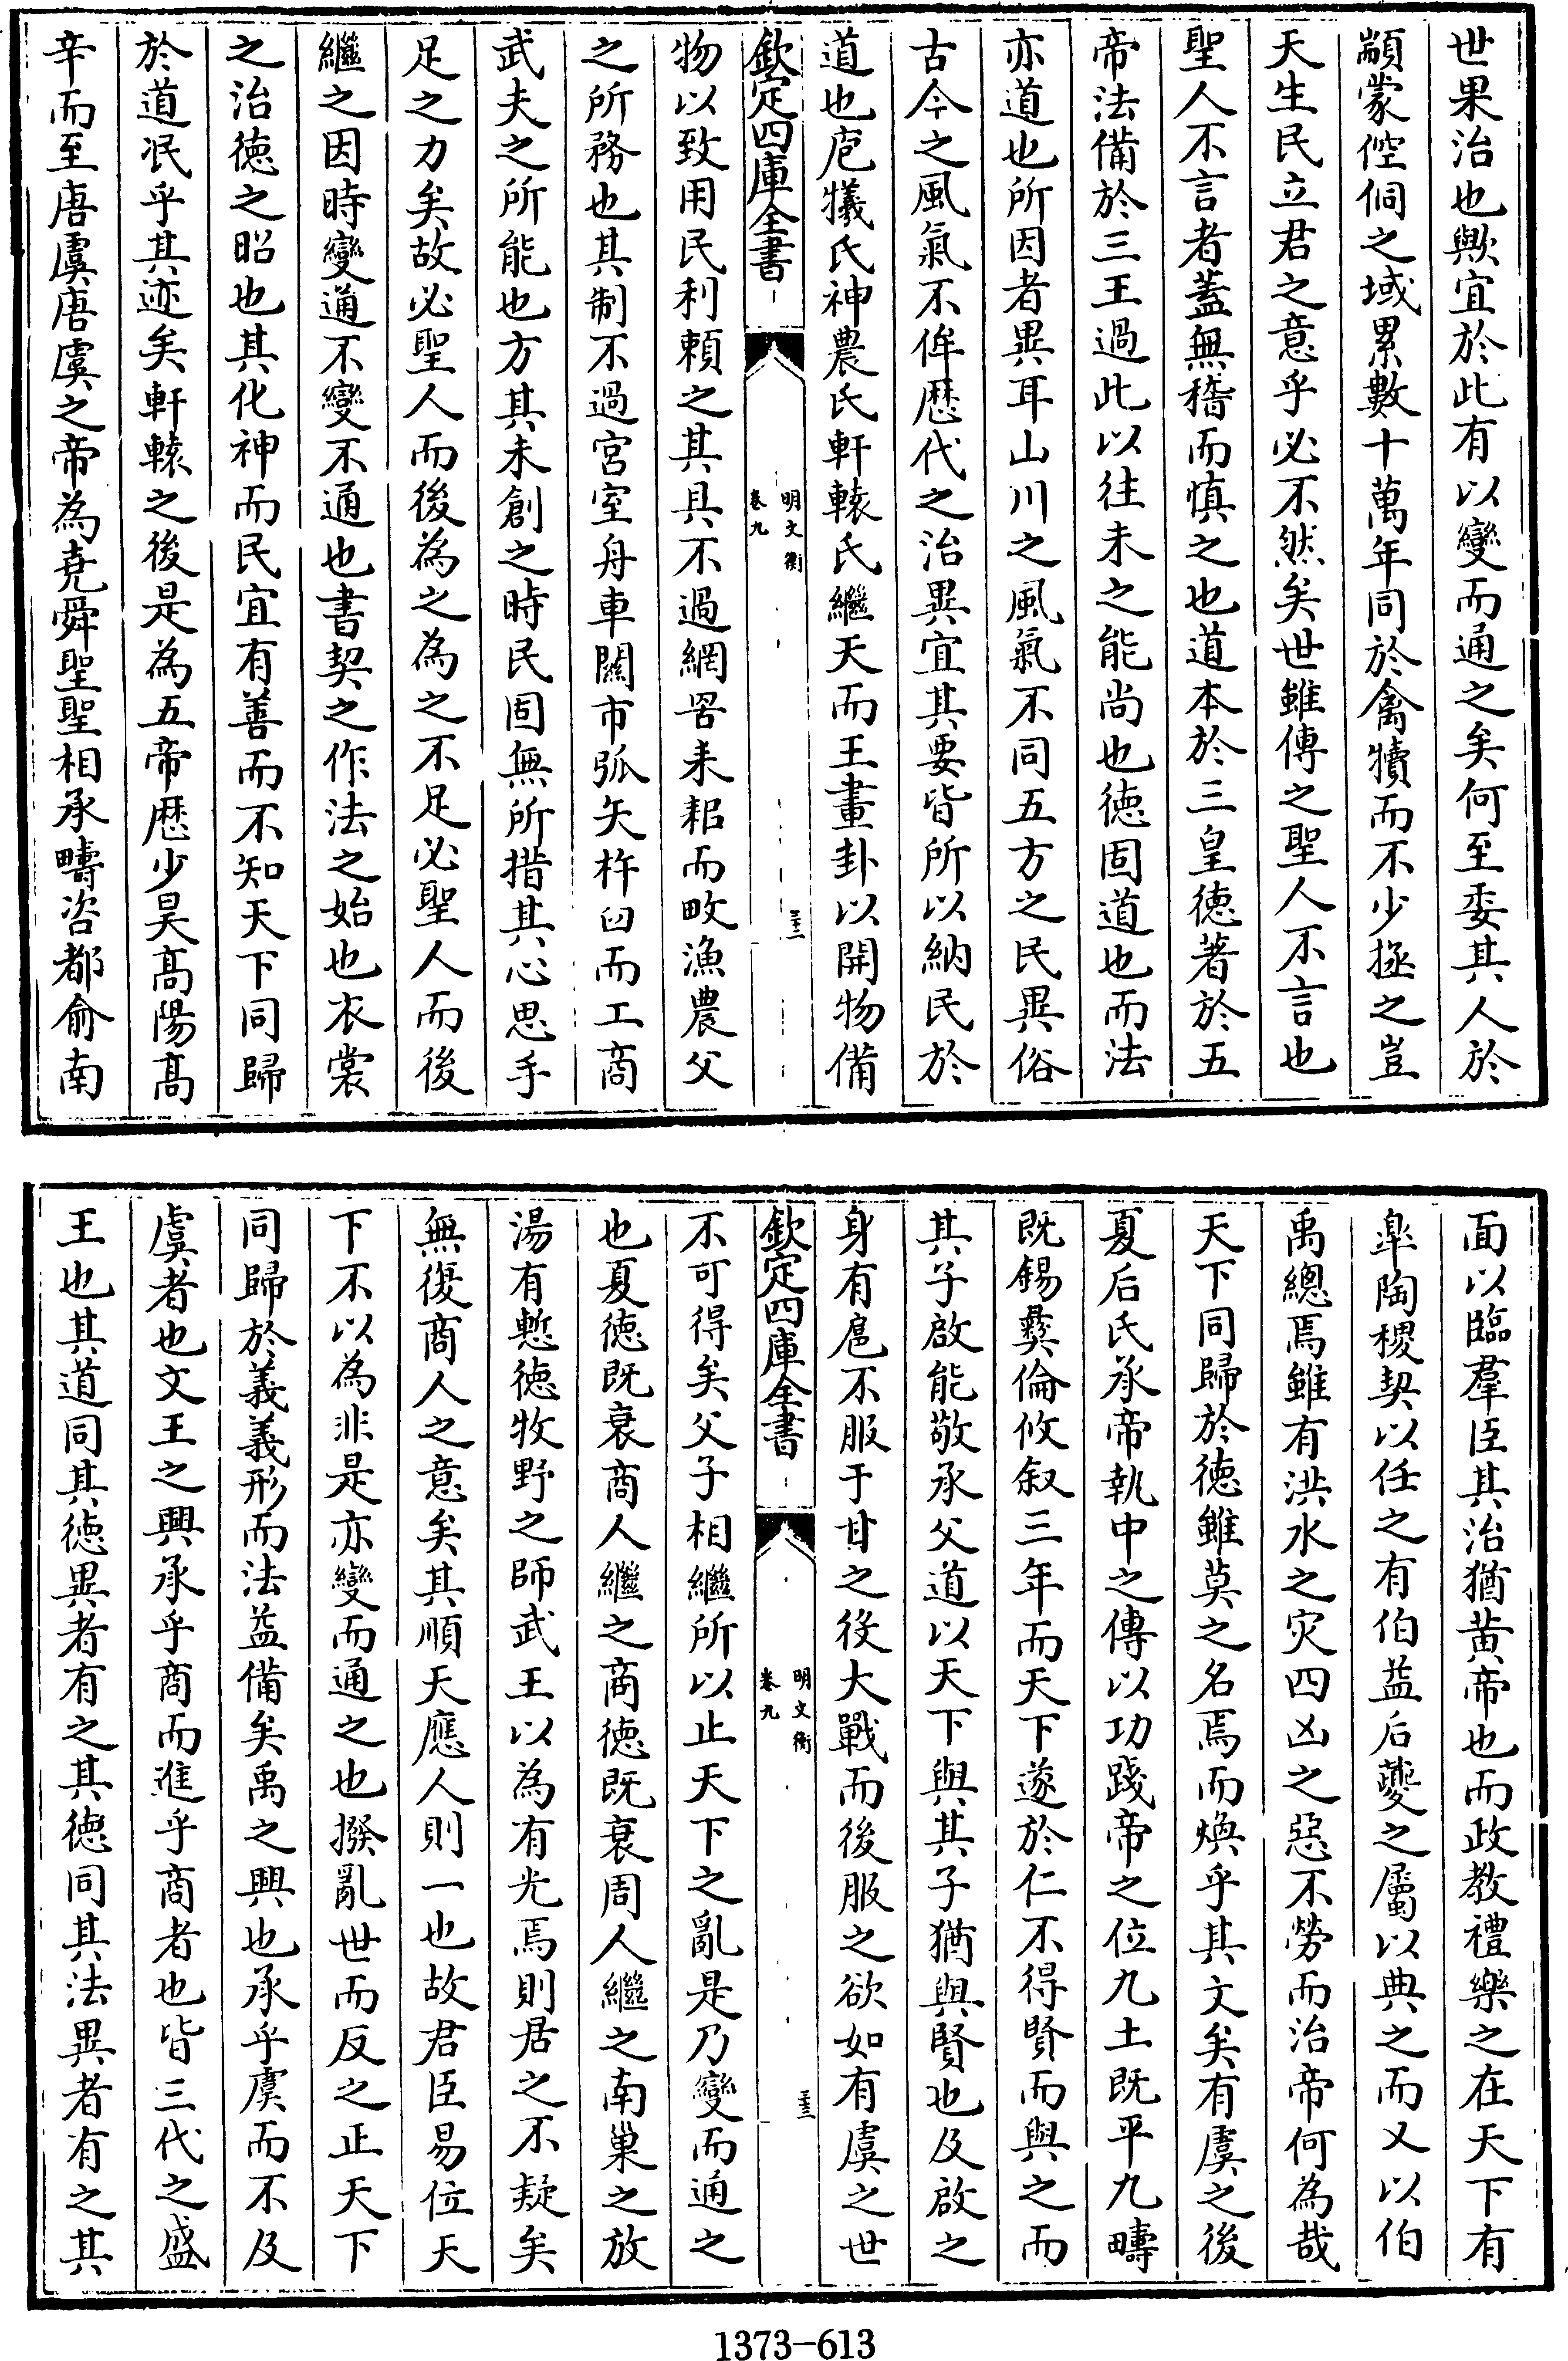 世果治也歟宜於此有以變而通之矣何至委其人於
顓蒙倥侗之域累數十萬年同於禽犢而不少拯之豈
天生民立君之意乎必不然矣世雖傳之聖人不言也
聖人不言者蓋無稽而慎之也道本於三皇德著於五
帝法備於三王過此以往未之能尚也德固道也而法
亦道也所因者異耳山川之風氣不同五方之民異俗
古今之風氣不侔歴代之治異宜其要皆所以納民於
道也庖犧氏神農氏軒轅氏繼天而王畫卦以開物備
欽定四庫全書
明文衡
卷九
三十二
物以致用民利賴之其具不過網罟耒耜而畋漁農父
之所務也其制不過宮室舟車關市弧矢杵臼而工商
武夫之所能也方其未創之時民固無所措其心思手
足之力矣故必聖人而後為之為之不足必聖人而後
繼之因時變通不變不通也書契之作法之始也衣裳
之治德之昭也其化神而民宜有善而不知天下同歸
於道冺乎其迹矣軒轅之後是為五帝歴少昊髙陽髙
辛而至唐虞唐虞之帝為堯舜聖聖相承疇咨都俞南
面以臨羣臣其治猶黄帝也而政教禮樂之在天下有
臯陶稷契以任之有伯益后夔之屬以典之而又以伯
禹總焉雖有洪水之灾四凶之惡不勞而治帝何為哉
天下同歸於德雖莫之名焉而煥乎其文矣有虞之後
夏后氏承帝執中之傳以功踐帝之位九土既平九疇
既錫彝倫攸叙三年而天下遂於仁不得賢而與之而
其子啟能敬承父道以天下與其子猶與賢也及啟之
身有扈不服于甘之役大戰而後服之欲如有虞之世
欽定四庫全書
明文衡
卷九
三十三
不可得矣父子相繼所以止天下之亂是乃變而通之
也夏德既衰商人繼之商德既衰周人繼之南巢之放
湯有慙德牧野之師武王以為有光焉則居之不疑矣
無復商人之意矣其順天應人則一也故君臣易位天
下不以為非是亦變而通之也撥亂世而反之正天下
同歸於義義形而法益備矣禹之興也承乎虞而不及
虞者也文王之興承乎商而進乎商者也皆三代之盛
王也其道同其德異者有之其德同其法異者有之其
1373-613